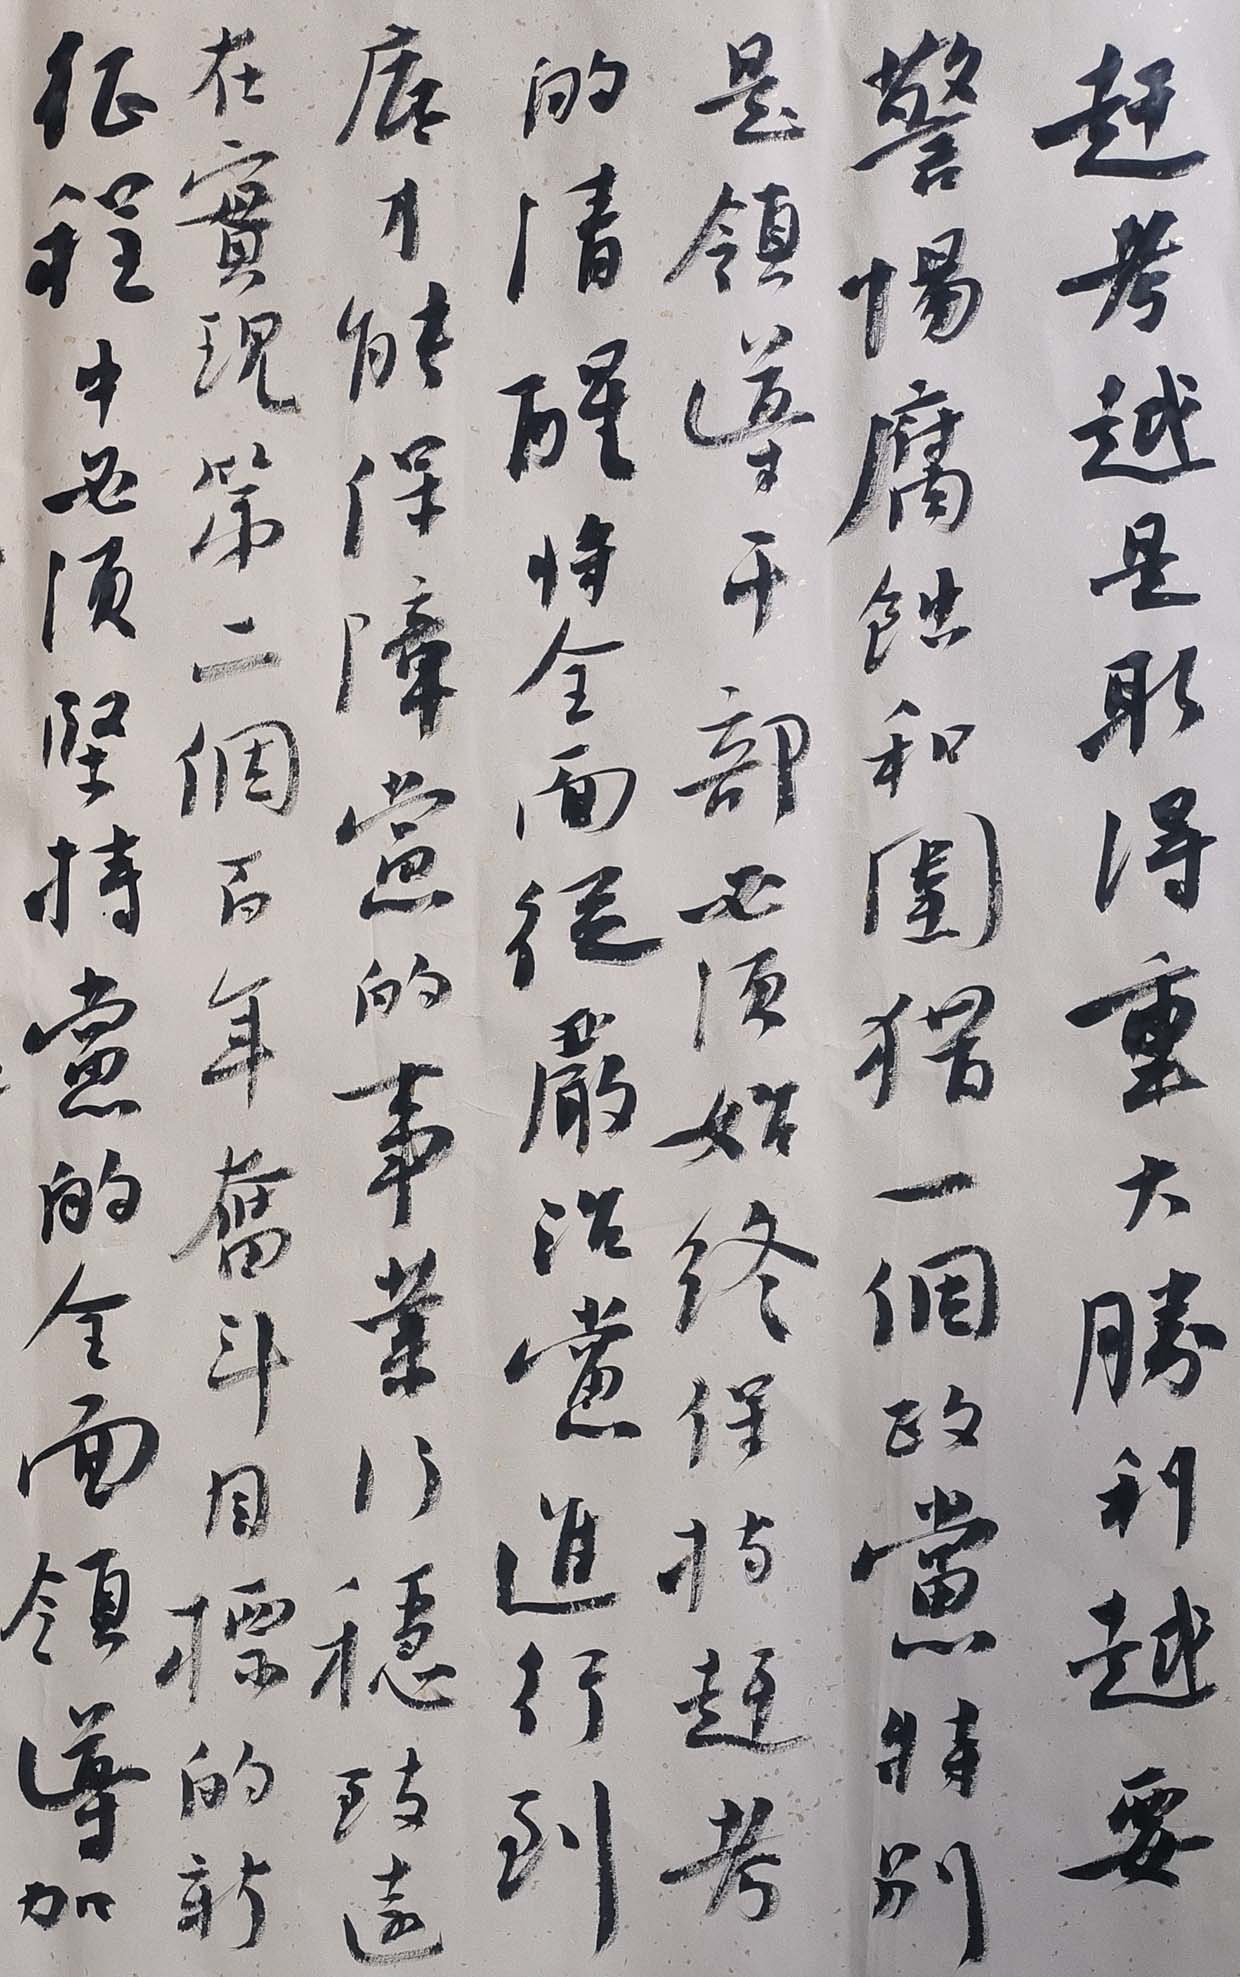 赶考越是取得重大勝利越要
警惕腐蝕和圍猎一個政黨特别
是領導干部必須始终保持赶考
的清醒将全面從嚴治黨進行到
底才能保障黨的事業行穩致遠
在實現第二個百年奮斗目標的新
征程中必須堅持黨的全面領導加